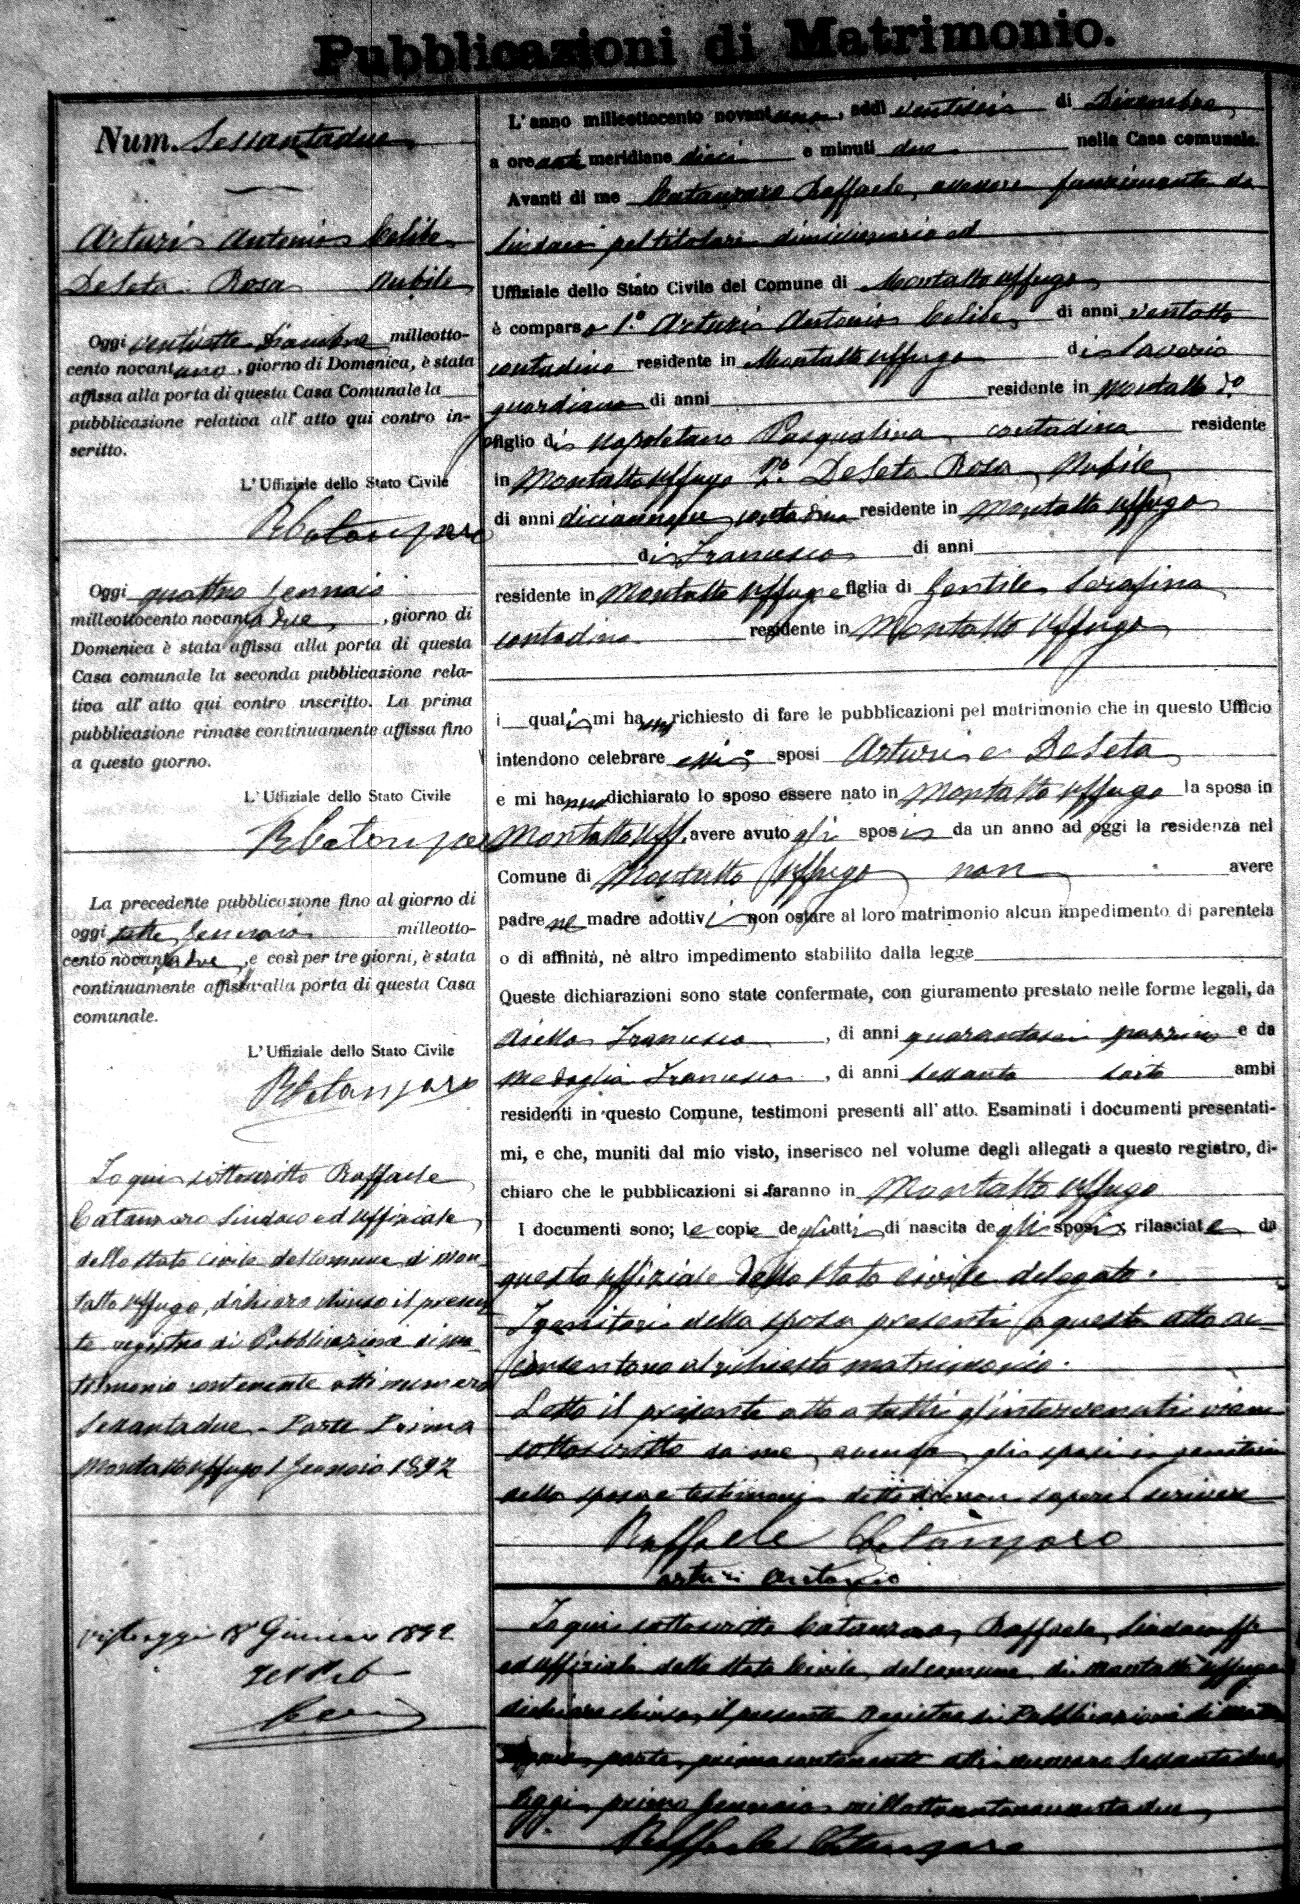 Pubblicazioni di Matrimonio.
Num. Sessantadue
Arturi Antonio Celibe
DeSeta Rosa Nubile
Oggi ventisette Dicembre milleotto-
cento novantuno, giorno di Domenica, è stata
affissa alla porta di questa Casa Comunale la
pubblicazione relativa all' atto qui contro in-
scritto.
L' Uffiziale dello Stato Civile
RCatanzaro
Oggi quattro Gennaio
milleottocento novantadue, giorno di
Domenica è stata affissa alla porta di questa
Casa comunale la seconda pubblicazione rela-
tiva all' atto qui contro inscritto. La prima
pubblicazione rimase continuamente affissa fino
a questo giorno.
L' Uffiziale dello Stato Civile
RCatanzaro
La precedente pubblicazione fino al giorno di
oggi sette Gennaio milleotto-
cento novantadue, e così per tre giorni, è stata
continuamente affissa alla porta di questa Casa
comunale.
L' Uffiziale dello Stato Civile
RCatanzaro
Io qui sottoscritto Raffaele
Catanzaro Sindaco ed Uffiziale
dello Stato Civile del Comune di Mon-
talto Uffugo, dichiaro chiuso il presen-
te registro di Pubblicazioni di ma-
trimonio contenente atti numero
Sessantadue - Parte Prima
Montalto Uffugo 1 Gennaio 1892
1892
L' anno milleottocento novantuno, addì ventisei di Dicembre
a ore ante meridiane dieci e minuti due nella Casa comunale.
Avanti di me Catanzaro Raffaele, assessore funzionante da
Sindaco pel titolare dimissionario ed
Uffiziale dello Stato Civile del Comune di Montalto Uffugo
è comparso 1.º Arturi Antonio Celibe, di anni ventotto
contadino residente in Montalto Uffugo di Saverio
guardiano di anni residente in Montalto
figlio di Napoletano Pasqualina contadina residente
in Montalto Uffugo 2.º DeSeta Rosa, Nubile
di anni diciannove contadina residente in Montalto Uffugo
di Francesco di anni
residente in Montalto Uffugo figlia di Gentile Serafina
contadina residente in Montalto Uffugo
i quali mi hanno richiesto di fare le pubblicazioni pel matrimonio che in questo Ufficio
intendono celebrare essi sposi Arturi e DeSeta
e mi hanno dichiarato lo sposo essere nato in Montalto Uffugo la sposa in
Montalto Uff. avere avuto gli sposi da un anno ad oggi la residenza nel
Comune di Montalto Uffugo non avere
padre nè madre adottivi non ostare al loro matrimonio alcun impedimento di parentela
o di affinità, nè altro impedimento stabilito dalla legge
Queste dichiarazioni sono state confermate, con giuramento prestato nelle forme legali, da
Aiello Francesco, di anni quarantasei e da
Medaglia Francesco, di anni sessanta sarto ambi
residenti in questo Comune, testimoni presenti all' atto. Esaminati i documenti presentati-
mi, e che, muniti dal mio visto, inserisco nel volume degli allegati a questo registro, di-
chiaro che le pubblicazioni si faranno in Montalto Uffugo
I documenti sono; le copie degli atti di nascita degli sposi; rilasciate da
questo uffiziale dello stato civile delegato.
I genitori della sposa presenti a questo atto ac-
consentono al richiesto matrimonio.
Letto il presente atto a tutti gl'intervenuti viene
sottoscritto da me, avendo gli sposi i genitori
della sposa e testimoni detto di non sapere scrivere
Raffaele Catanzaro
arturi antonio
Io qui sottoscritto Catanzaro Raffaele, Sindaco ff.
ed uffiziale dello Stato Civile del comune di Montalto Uffugo
dichiaro chiuso il presente Registro di Pubblicazioni di matri-
monio, parte prima contenente atti numero Sessantadue
Oggi primo Gennaio milleottocentonovantadue
Raffaele Catanzaro